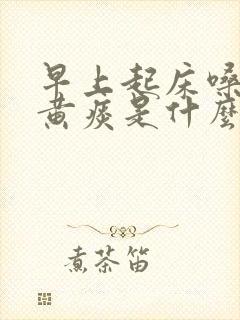 早上起床嗓
黄痰是什麼
煮茶笛